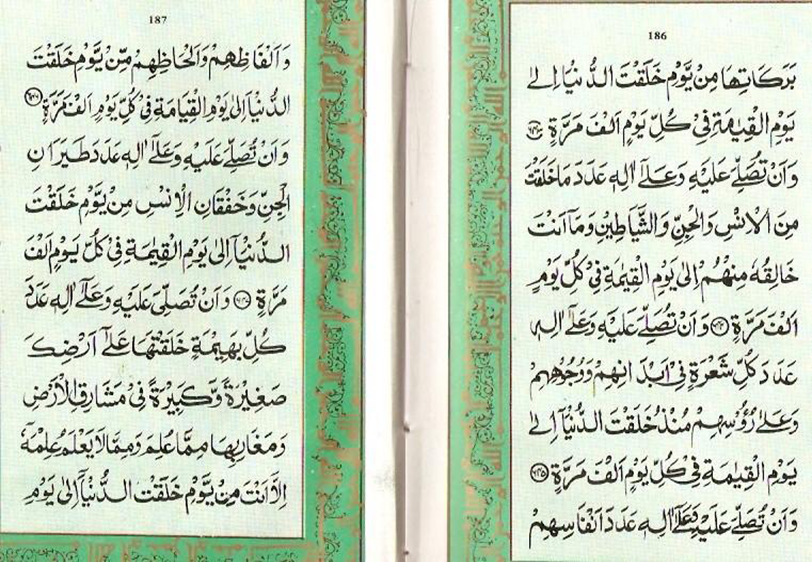 186
بَرَكَاتِهَا مِنْ يَّوْمِ خَلَقْتَ الدُّنْيَا إِلٰى
يَوْمِ الْقِيٰمَةِ فِىْ كُلِّ يَوْمٍ اَلْفَ مَرَّةٍ
وَاَنْ تُصَلِّىَ عَلَيْهِ وَعَلٰٓى اٰلِهٖ عَدَدَ مَا خَلَقْتَ
مِنَ الْاِنْسِ وَالْجِنِّ وَالشَّيَاطِيْنِ وَمَآ اَنْتَ
خَالِقُهٗ مِنْهُمْ اِلٰى يَوْمِ الْقِيٰمَةِ فِىْ كُلِّ يَوْمٍ
اَلْفَ مَرَّةٍ وَاَنْ تُصَلِّىَ عَلَيْهِ وَعَلٰٓى اٰلِهٖ
عَدَدَ كُلِّ شَعْرَةٍ فِىْٓ اَبْدَانِهِمْ وَوُجُوْهِهِمْ
وَعَلٰى رُؤُسِهِمْ مُنْذُ خَلَقْتَ الدُّنْيَآ اِلٰى
يَوْمِ الْقِيٰمَةِ فِىْ كُلِّ يَوْمٍ اَلْفَ مَرَّةٍ
وَاَنْ تُصَلِّىَ عَلَيْهِ وَعَلٰٓى اٰلِهٖ عَدَدَ اَنْفَاسِهِمْ
187
وَاَلْفَاظِهِمْ وَاَلْحَاظِهِمْ مِنْ يَّوْمِ خَلَقْتَ
الدُّنْيَآ اِلٰى يَوْمِ الْقِيَامَةِ فِىْ كُلِّ يَوْمٍ اَلْفَ مَرَّةٍ
وَاَنْ تُصَلِّىَ عَلَيْهِ وَعَلٰٓى اٰلِهٖ عَدَدَ طَيَرَانِ
الْجِنِّ وَخَفْقَانِ الْاِنْسِ مِنْ يَّوْمِ خَلَقْتَ
الدُّنْيَآ اِلٰى يَوْمِ الْقِيٰمَةِ فِىْ كُلِّ يَوْمٍ اَلْفَ
مَرَّةٍ وَاَنْ تُصَلِّىَ عَلَيْهِ وَعَلٰٓى اٰلِهٖ عَدَدَ
كُلِّ بَهِيْمَةٍ خَلَقْتَهَا عَلٰٓى اَرْضِكَ
صَغِيْرَةً وَّكَبِيْرَةً فِىْ مَشَارِقِ الْاَرْضِ
وَمَغَارِبِهَا مِمَّا عُلِمَ وَمِمَّا لَا يَعْلَمُ عِلْمَهٗٓ
اِلَّآ اَنْتَ مِنْ يَّوْمِ خَلَقْتَ الدُّنْيَآ اِلٰى يَوْمِ